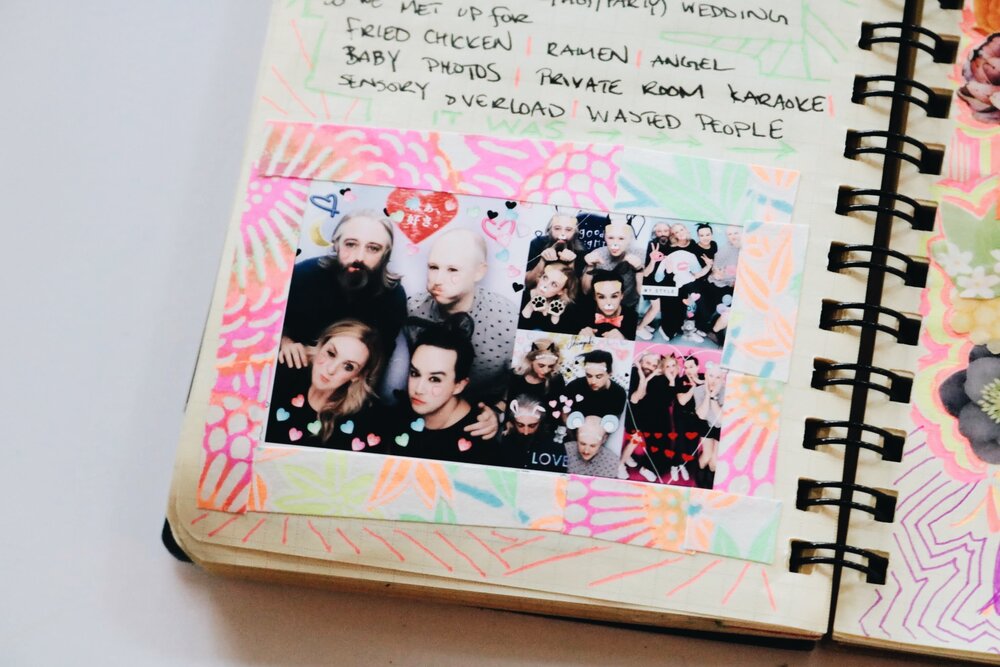 PARTY) WEDDING
MET UP FOR
FRIED CHICKEN | RAMEN | ANGEL
BABY PHOTOS | PRIVATE ROOM KARAOKE |
SENSORY OVERLOAD | WASTED PEOPLE
IT WAS
好き。
good
MY STYLE
LOVE